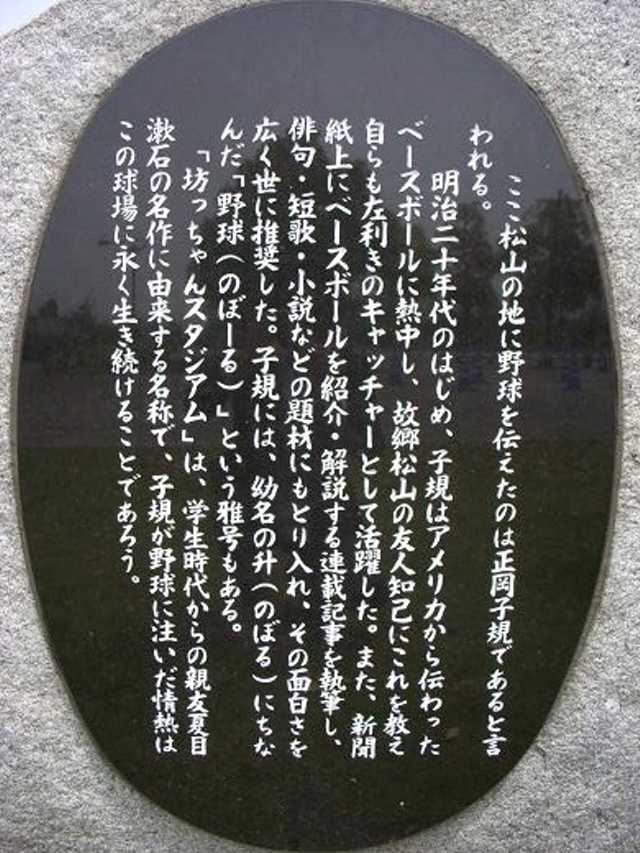 ここ松山の地に野球を伝えたのは正岡子規であると言
われる。
明治二十年代のはじめ、子規はアメリカから伝わった
ベースボールに熱中し、故郷松山の友人知己にこれを教え
自らも左利きのキャッチャーとして活躍した。また、新聞
紙上にベースボールを紹介・解説する連載記事を執筆し、
俳句・短歌・小説などの題材にもとり入れ、その面白さを
広く世に推奨した。子規には、幼名の升(のぼる)にちな
んだ「野球(のぼーる)」という雅号もある。
「坊っちゃんスタジアム」は、学生時代からの親友夏目
漱石の名作に由来する名称で、子規が野球に注いだ情熱は
この球場に永く生き続けることであろう。